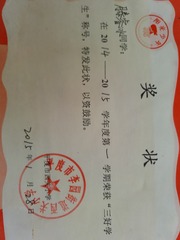 奖 状
同学：
在2014—2015学年度第一学期荣获“三好学
生”称号，特发此状，以资鼓励。
2015年1月 日